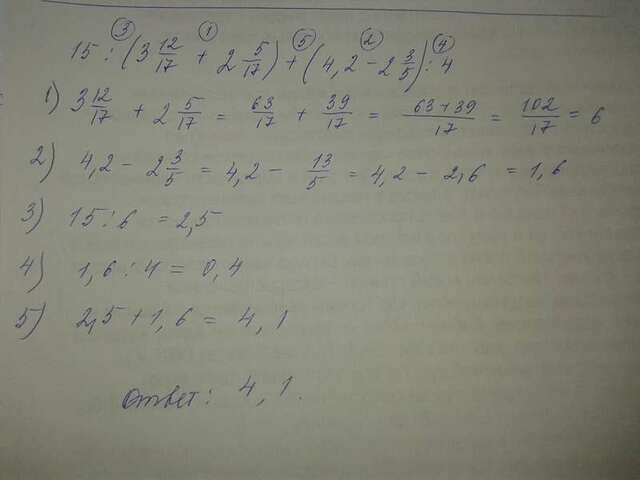 15 : (3 12/17 + 2 5/17) + (4,2 - 2 3/5) : 4
1) 3 12/17 + 2 5/17 = 63/17 + 39/17 = 63+39/17 = 102/17 = 6
2) 4,2 - 2 3/5 = 4,2 - 13/5 = 4,2 - 2,6 = 1,6
3) 15 : 6 = 2,5
4) 1,6 : 4 = 0,4
5) 2,5 + 1,6 = 4,1
Ответ: 4,1.